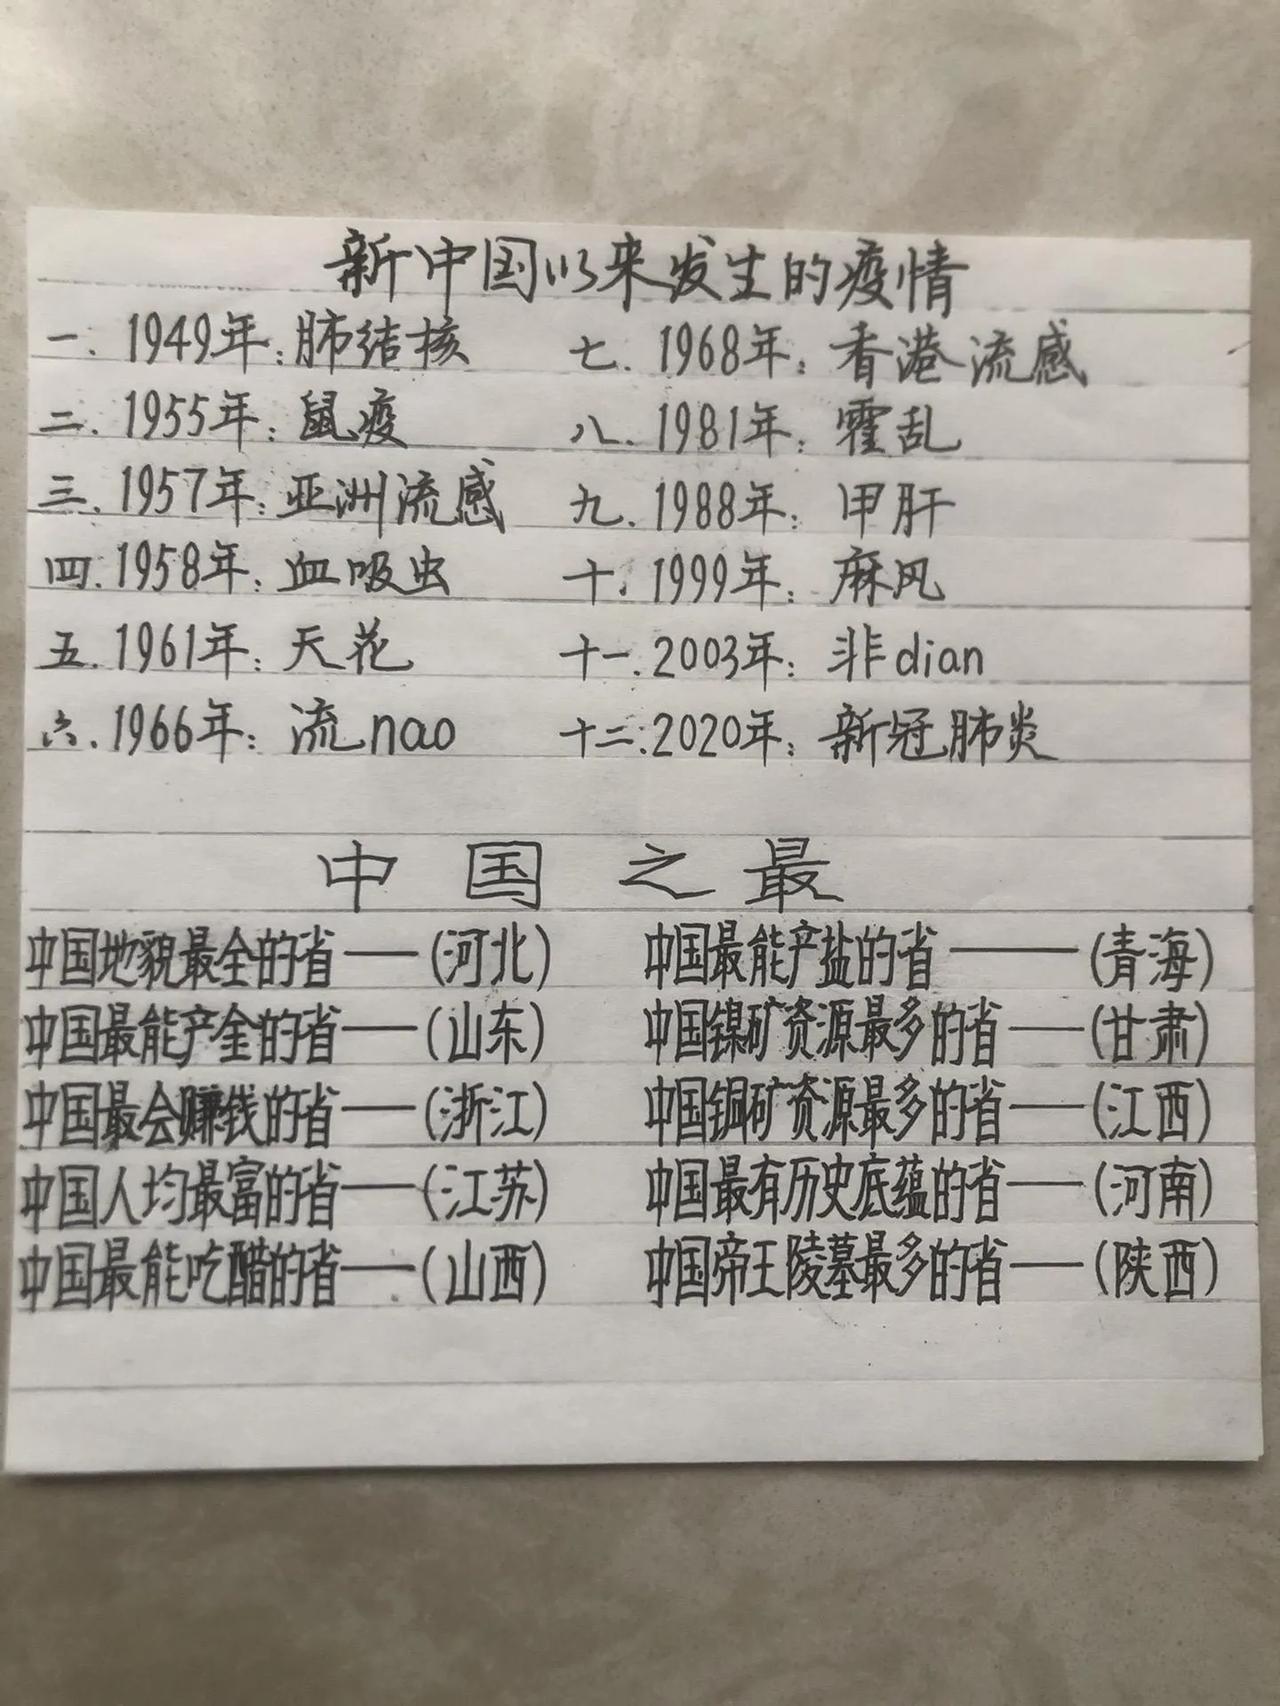 新中国以来发生的疫情
一. 1949年:肺结核 七. 1968年:香港流感
二. 1955年:鼠疫 八. 1981年:霍乱
三. 1957年:亚洲流感 九. 1988年:甲肝
四. 1958年:血吸虫 十. 1999年:麻风
五. 1961年:天花 十一. 2003年:非dian
六. 1966年:流nao 十二. 2020年:新冠肺炎
中国之最
中国地貌最全的省——(河北) 中国最能产盐的省——(青海)
中国最能产金的省——(山东) 中国镍矿资源最多的省——(甘肃)
中国最会赚钱的省——(浙江) 中国铜矿资源最多的省——(江西)
中国人均最富的省——(江苏) 中国最有历史底蕴的省——(河南)
中国最能吃醋的省——(山西) 中国帝王陵墓最多的省——(陕西)